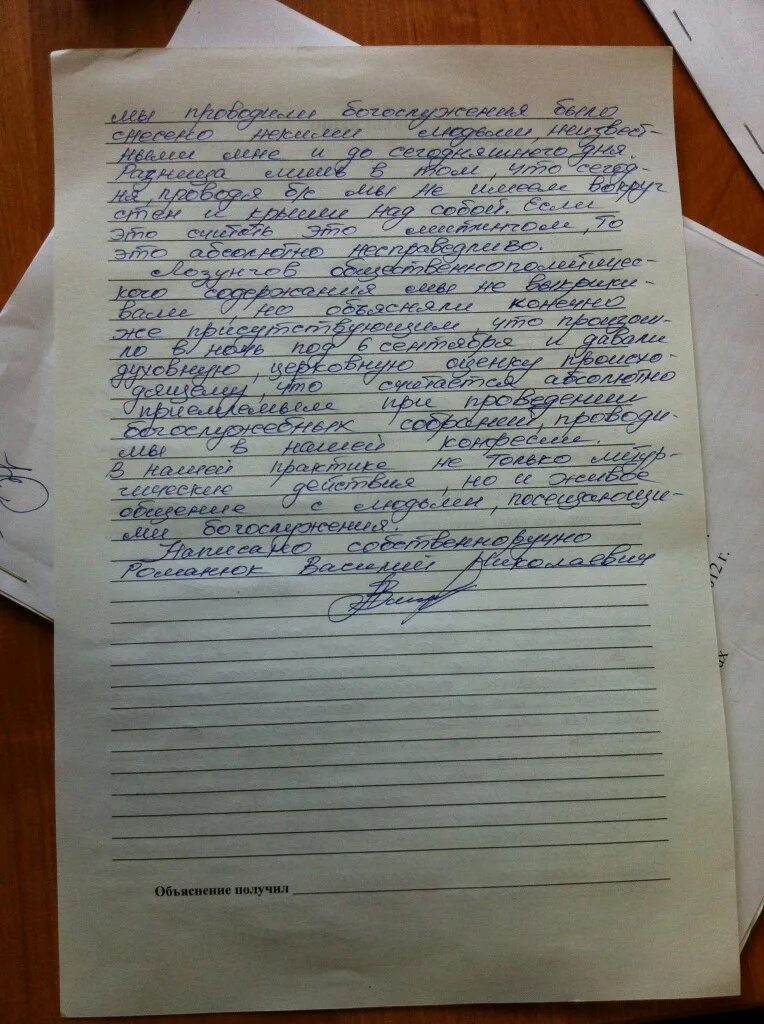 мы проводили богослужения было
снесено некими людьми, неизвест-
ными мне и до сегодняшнего дня.
Разница лишь в том, что сегод-
ня, проводя б/с мы не имеем вокруг
стен и крыши над собой. Если
это считать это митингом, то
это абсолютно несправедливо.
Лозунгов общественнополитичес-
кого содержания мы не выкрики-
вали но объясняли конечно
же присутствующим, что произош-
ло в ночь под 6 сентября и давали
духовную, церковную оценку происхо-
дящему, что считается абсолютно
приемлемым при проведении
богослужебных собраний, проводи-
мы в нашей конфесии.
В нашей практике не только литур-
гические действия, но и живое
общение с людьми, посещающи-
ми богослужения.
Написано собственноручно
Романюк Василий Николаевич
Объяснение получил
12 г.
ах